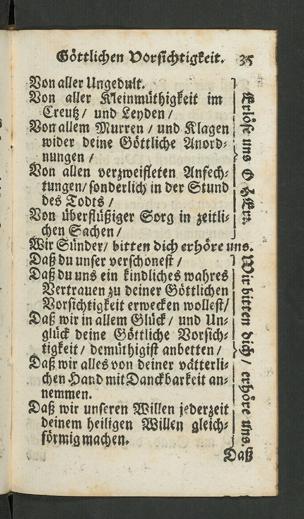 Göttlichen Vorsichtigkeit. 35
Von aller Ungedult.
Von aller Kleinmüthigkeit im
Creutz / und Leyden /
Von allem Murren / und Klagen
wider deine Göttliche Anord-
nungen /
Von allen verzweifleten Anfech-
tungen / sonderlich in der Stund
des Todts /
Von überflüßiger Sorg in zeitli-
chen Sachen /
Erlöse uns O HErr.
Wir Sünder / bitten dich erhöre uns.
Daß du unser verschonest /
Daß du uns ein kindliches wahres
Vertrauen zu deiner Göttlichen
Vorsichtigkeit erwecken wollest /
Daß wir in allem Glück / und Un-
glück deine Göttliche Vorsich-
tigkeit / demüthigist anbetten /
Daß wir alles von deiner vätterli-
chen Hand mit Danckbarkeit an-
nemmen.
Daß wir unseren Willen jederzeit
deinem heiligen Willen gleich-
förmig machen.
Wir bitten dich / erhöre uns.
Daß